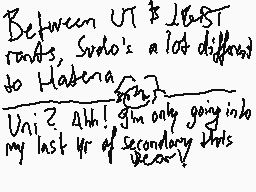 Between UT & IBST
rants, Sudo's a lot different
to Hatena
Uni? Ahh! I'm only going into
my last yr of secondary this
year!